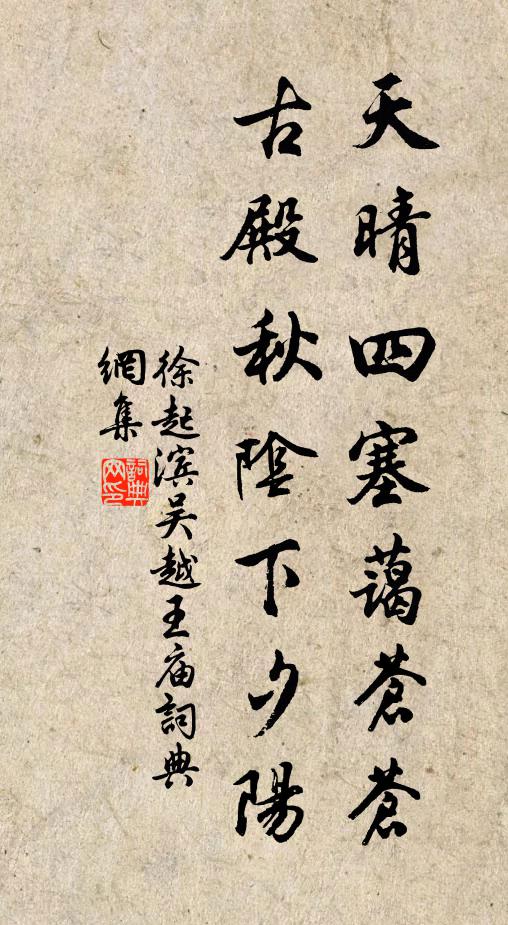 天晴四塞蔼蒼蒼
古殿秋陰下夕陽
徐起滨吴越王庙詞典
網集
詞典
网印